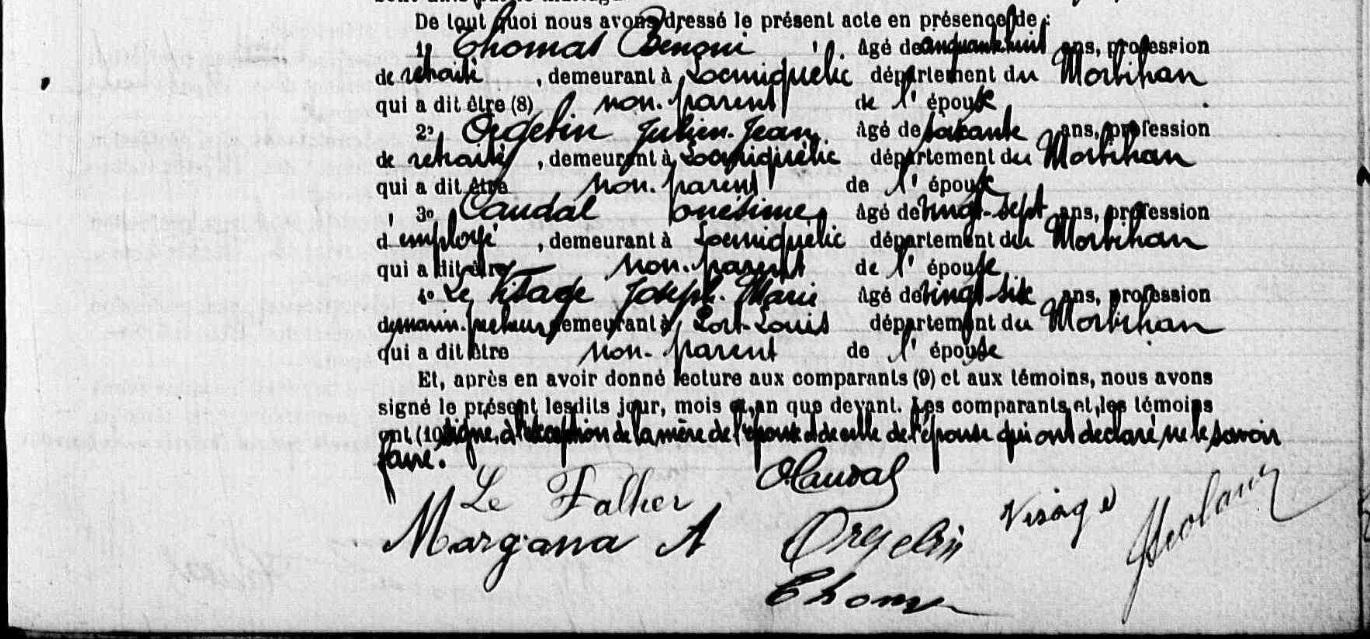 De tout quoi nous avons dressé le présent acte en présence de :
1º Thomas Bénoni, âgé de cinquante huit ans, profession
de retraité, demeurant à Locmiquélic département du Morbihan
qui a dit être (8) non parent de l'époux
2º Orgebin Julien Jean âgé de soixante ans, profession
de retraité, demeurant à Locmiquélic département du Morbihan
qui a dit être non parent de l'époux
3º Caudal Onésime, âgé de vingt-sept ans, profession
d'employé, demeurant à Locmiquélic département du Morbihan
qui a dit être non parent de l'épouse
4º Le Visage Joseph Marie âgé de vingt six ans, profession
de marin-pêcheur demeurant à Port-Louis département du Morbihan
qui a dit être non parent de l'épouse
Et, après en avoir donné lecture aux comparants (9) et aux témoins, nous avons
signé le présent lesdits jour, mois et an que devant. Les comparants et les témoins
ont (10) signé, à l'exception de la mère de l'époux et de celle de l'épouse qui ont déclaré ne le savoir
faire.
Le Falher OCaudal
Margana A Orgebin Visage
Thomas